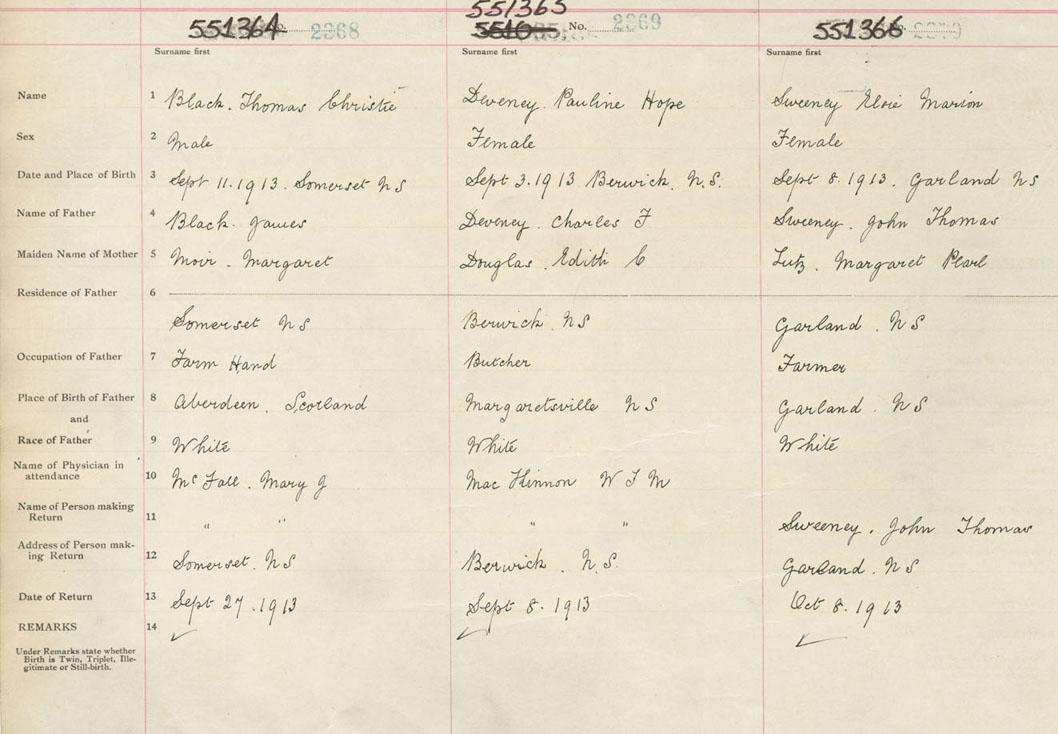 551365
551364 No. 2368 5510 No. 2369 551366 No.
Surname first Surname first Surname first
Name 1 Black. Thomas Christie Deveney. Pauline Hope Sweeney Elsie Marion
Sex 2 Male Female Female
Date and Place of Birth 3 Sept 11. 1913. Somerset NS Sept 3. 1913 Berwick. N.S. Sept 8. 1913. Garland NS
Name of Father 4 Black. James Deveney. Charles F Sweeney. John Thomas
Maiden Name of Mother 5 Moir. Margaret Douglas. Edith C Lutz. Margaret Pearl
Residence of Father 6
Somerset NS Berwick. NS Garland. NS
Occupation of Father 7 Farm Hand Butcher Farmer
Place of Birth of Father 8 Aberdeen. Scotland Margaretsville NS Garland. NS
and
Race of Father 9 White White White
Name of Physician in
attendance 10 Mary MacKinnon W F M
Name of Person making
Return 11 " " " " Sweeney. John Thomas
Address of Person mak-
ing Return 12 Somerset. NS Berwick. N.S. Garland. NS
Date of Return 13 Sept 27. 1913 Sept 8. 1913 Oct 8. 1913
REMARKS 14
Under Remarks state whether
Birth is Twin, Triplet, Ille-
gitimate or Still-birth.